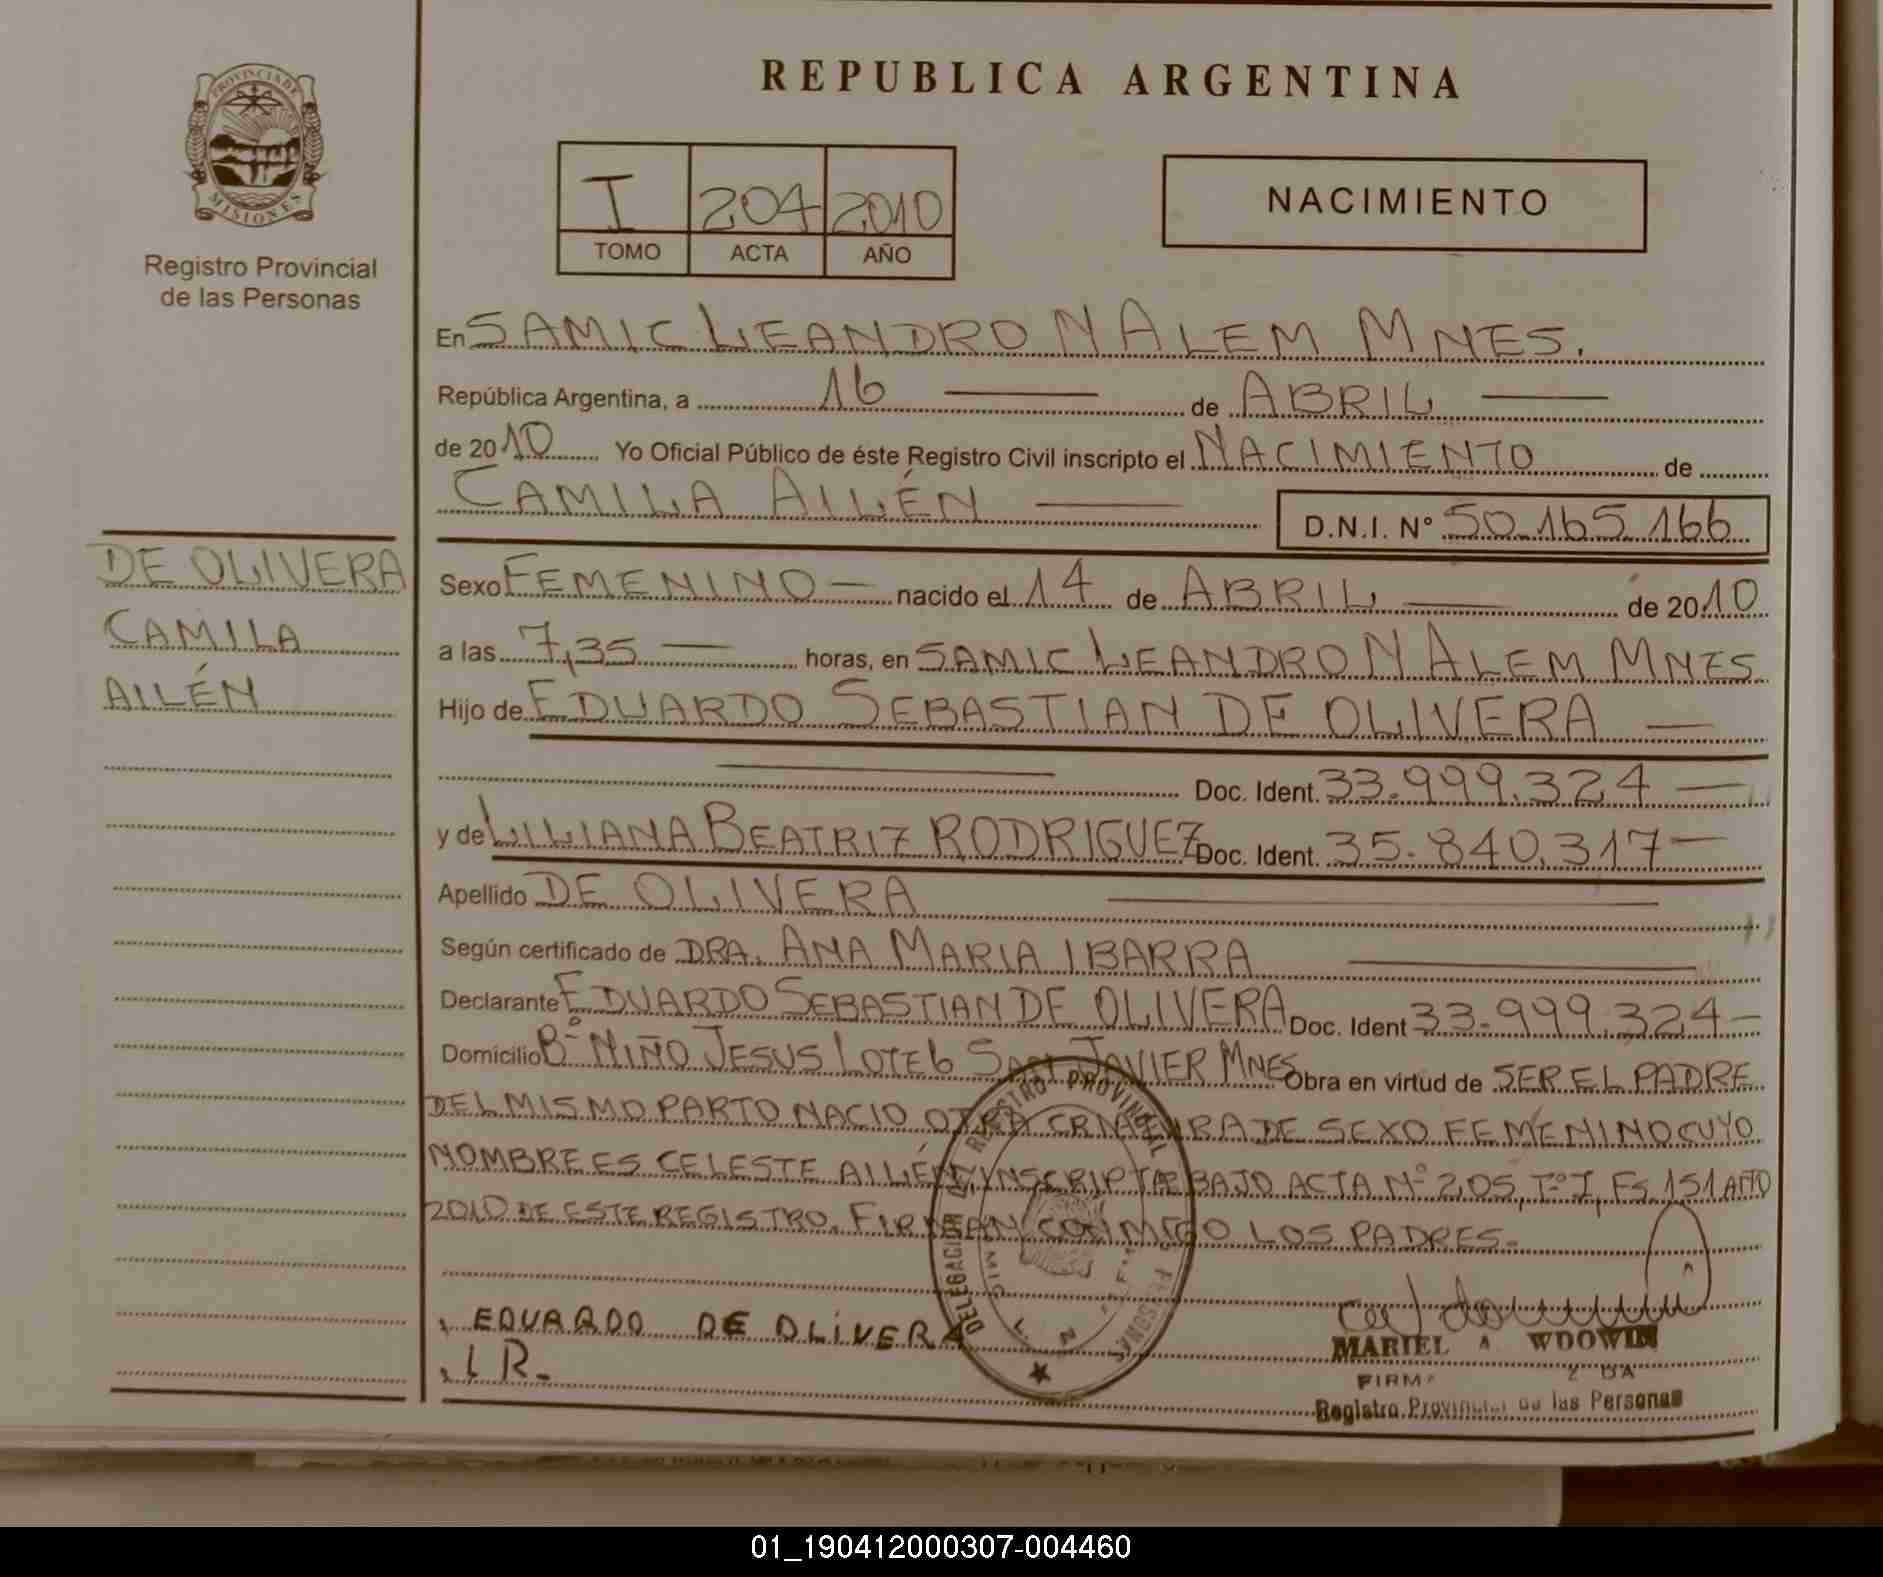 PROVINCIA DE
MISIONES
Registro Provincial
de las Personas
DE OLIVERA
CAMILA
AILÉN
REPUBLICA ARGENTINA
I 204 2010
TOMO ACTA AÑO
NACIMIENTO
En SAMIC LEANDRO N ALEM MNES.
República Argentina, a 16 de ABRIL
de 2010 Yo Oficial Público de éste Registro Civil inscripto el NACIMIENTO de
CAMILA AILÉN D.N.I. N° 50.165.166
Sexo FEMENINO nacido el 14 de ABRIL de 2010
a las 7,35 horas, en SAMIC LEANDRO N ALEM MNES
Hijo de EDUARDO SEBASTIAN DE OLIVERA
Doc. Ident. 33.999.324
y de LILIANA BEATRIZ RODRIGUEZ Doc. Ident. 35.840.317
Apellido DE OLIVERA
Según certificado de DRA. ANA MARIA IBARRA
Declarante EDUARDO SEBASTIAN DE OLIVERA Doc. Ident 33.999.324
Domicilio B° NIÑO JESUS LOTE 6 SAN JAVIER MNES Obra en virtud de SER EL PADRE
DEL MISMO PARTO NACIO OTRA CRIATURA DE SEXO FEMENINO CUYO
NOMBRE ES CELESTE AILÉN, INSCRIPTA BAJO ACTA N° 205, T° I, Fs 151 AÑO
2010 DE ESTE REGISTRO. FIRMAN CONMIGO LOS PADRES.
EDUARDO DE OLIVERA
L R.
DELEGACION REGISTRO PROVINCIAL PERSONAS
L. N.
MARIEL A WDOWIN
FIRMA
Registro Provincial de las Personas
01_190412000307-004460